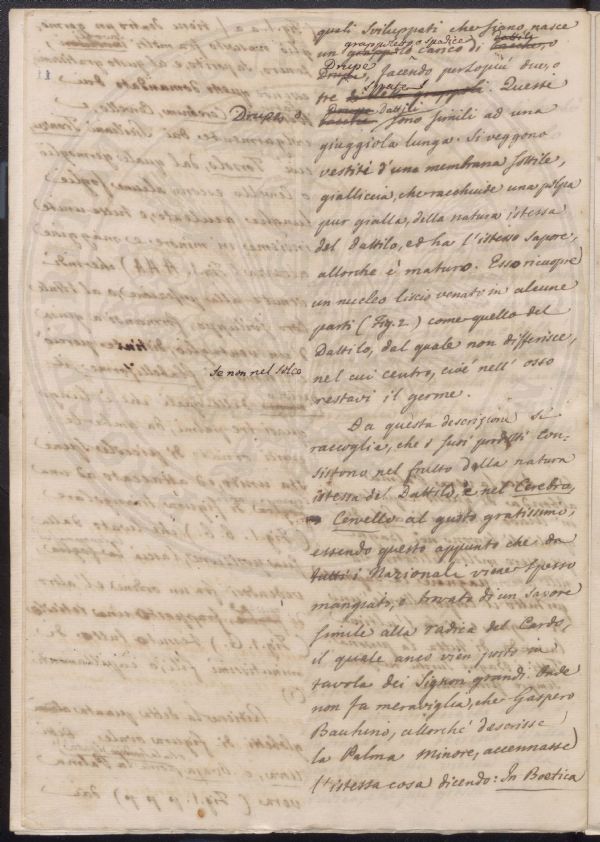 quali sviluppati che siano, nasce
un grappolo o spadice carico di dattili
Drupe, facendo per lo più due, o
tre Spate. Queste
Drupe, o dattili sono simili ad una
giuggiola lunga. Si veggono
vestite d'una membrana sottile,
gialliccia, che racchiude una polpa
pur gialla, della natura istessa
del dattilo, ed ha l'istesso sapore,
allorche è maturo. Esso ricuopre
un nucleo liscio venato in alcune
parti (Fig. 2.) come quello del
Dattilo, dal quale non differisce,
se non nel solco
nel cui centro, cioè nell' osso
restavi il germe.
Da questa descrizione si
raccoglia, che i suoi prodotti con-
sistono nel frutto della natura
istessa del Dattilo, e nel Cerebro,
Cervello al gusto gratissimo,
essendo questo appunto che da
tutti i Nazionali viene spesso
mangiato, e trovato di un sapore
simile alla radica del Cardo,
il quale anco vien posto in
tavola dei Signori grandi. Onde
non fa meraviglia, che Gaspero
Bauhino, allorché descrisse
la Palma minore, accennasse
l'istessa cosa dicendo: In Boetica